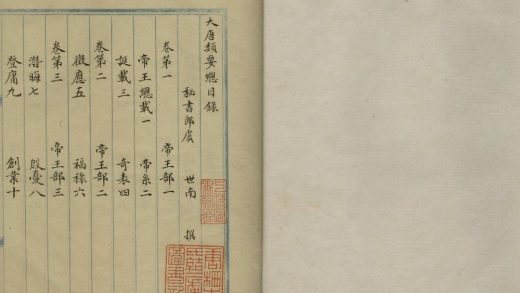 大唐類要總目錄
秘書郎虞 世南 撰
卷第一 帝王部一
帝王總載一 帝系二
誕載三 奇表四
卷第二 帝王部二
徵應五 福祿六
卷第三 帝王部三
潛晦七 殷憂八
登庸九 創業十